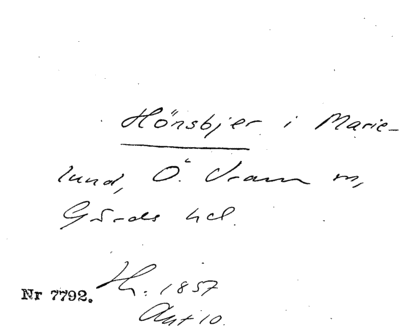 Hönsbjer i Marie-
lund, Ö. Vram sn,
Gärds hd.
Nr 7792. Hh. 1857
Akt 10.